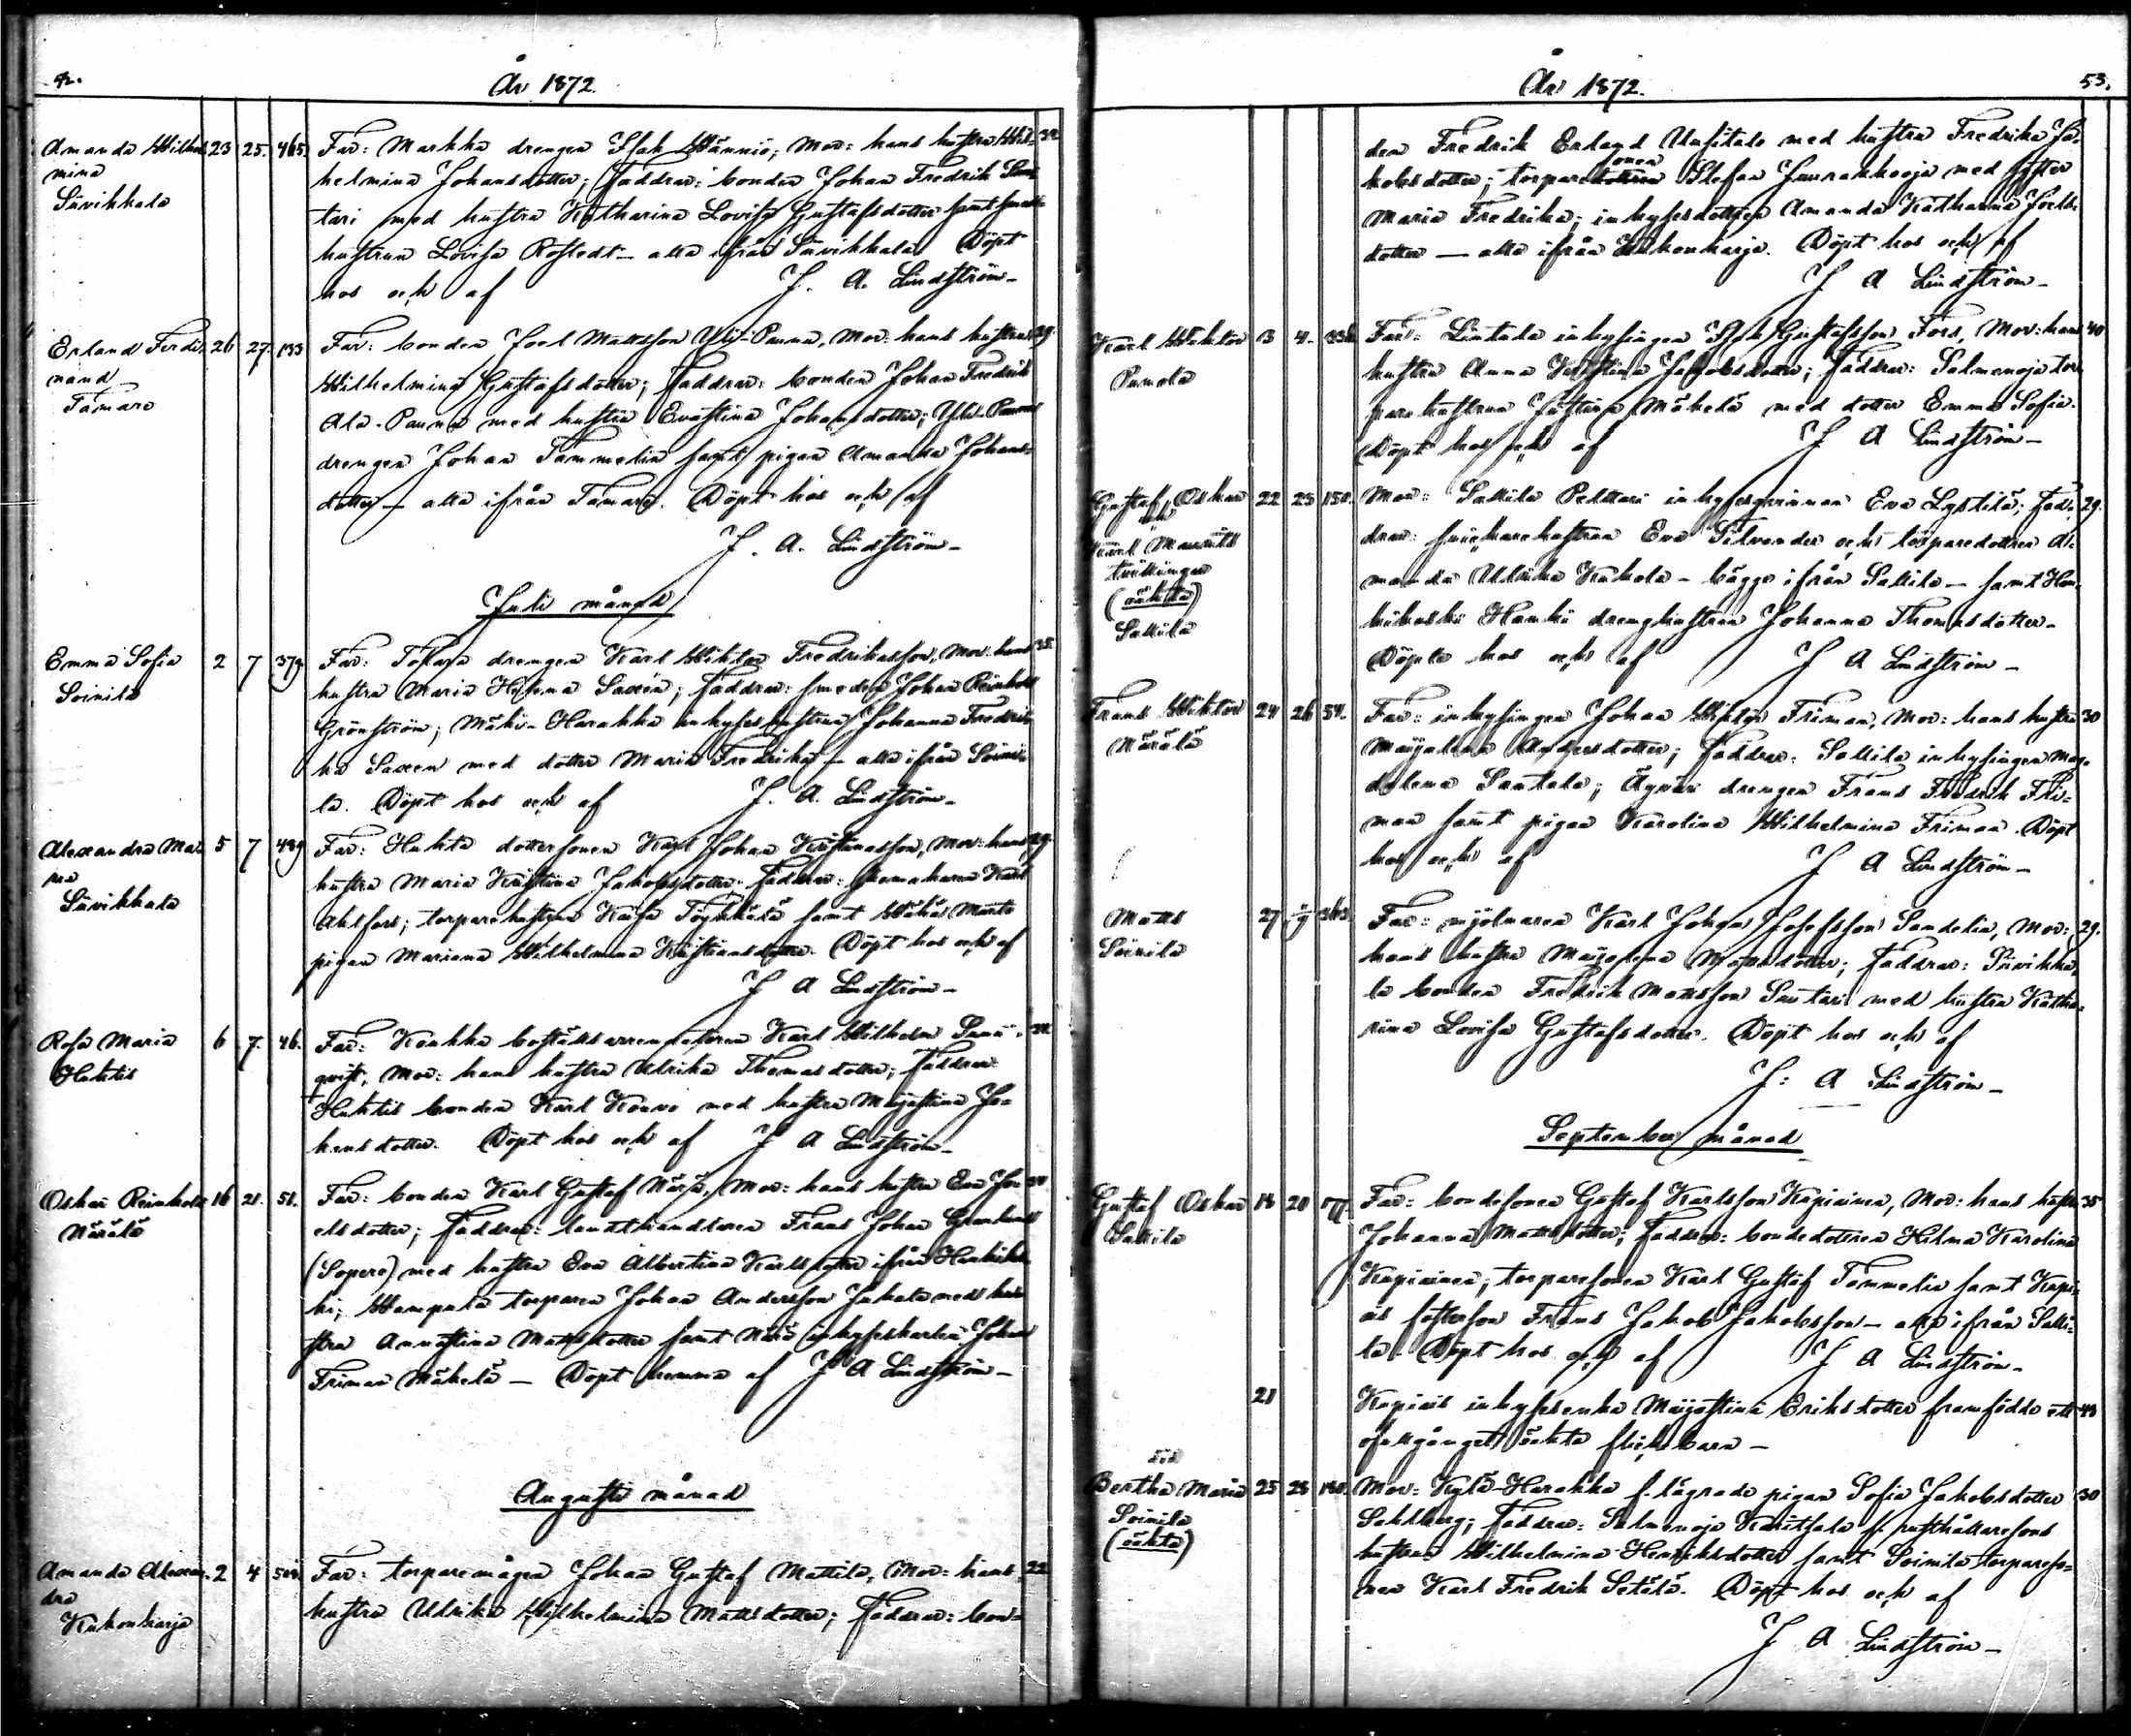 52.
År 1872.
Amanda Wilhel- 23 25. 465. Far: Markka drengen Isak Wänniö; Mor: hans hustru Wil- 32
mina helmina Johansdotter; Faddrar: bonden Johan Fredrik Sun-
Siivikkala tari med hustru Katharina Lovisa Gustafsdotter samt
hustrun Lovisa Rostedt — alla ifrån Siivikkala. Döpt
hos och af J. A. Lindström —
Erland Ferdi- 26 27. 133 Far: bonden Joel Mattsson Yli-Panna, Mor: hans hustru 29.
nand Wilhelmina Gustafsdotter; Faddrar: bonden Johan Fredrik
Tamare Ala-Panna med hustru Evastina Johansdotter; Yli-Pannas
drengen Johan Tammelin samt pigan Amanda Johans-
dotter — alla ifrån Tamare. Döpt hos och af
J. A. Lindström —
Juli månad
Emma Sofia 2 7 379 Far: drengen Karl Wiktor Fredriksson, Mor: hans 35.
Soinila hustru Maria Helena Saxén; Faddrar: smeden Johan Reinhold
Grönström; Mäki-Harakka inhyseshustrun Johanna Fredri-
ka Saxen med dotter Maria Fredrika — alla ifrån Soini-
la. Döpt hos och af J. A. Lindström —
Alexandra Ma- 5 7 489 Far: dottersonen Karl Johan Kristiansson, Mor: hans 29.
ria hustru Maria Kristina Jakobsdotter; Faddrar: skomakaren Karl
Siivikkala Ahlfors; torparehustrun Kaisa samt
pigan Mariana Wilhelmina Kristiansdotter. Döpt hos och af
J A Lindström —
Rosa Maria 6 7. 46. Far: Kaukka boställsarrendatoren Karl Wilhelm Sund-
Huhtis qvist, Mor: hans hustru Ulrika Thomasdotter; Faddrar:
Huhtis bonden Karl Kouvo med hustru Majastina Jo-
hansdotter. Döpt hos och af J A Lindström —
Oskar Reinhold 16 21. 51. Far: bonden Karl Gustaf Närä, Mor: hans hustru Eva Jo-
Närälä elsdotter; Faddrar: landthandlaren Frans Johan
(Sopere) med hustru Eva Albertina Karlsdotter ifrån Honkilah-
ki; Wampula torparen Johan Andersson Juhala med hu-
stru Annastina Mattsdotter samt Närä inhyseskarlen Johan
Friman Mäkelä — Döpt hemma af J A Lindström —
Augusti månad
Amanda Alexan- 2 4 Far: torparemågen Johan Gustaf Mattila, Mor: hans 22
dra hustru Ulrika Wilhelmina Mattsdotter; Faddrar: bon-
Kukonharja
År 1872.
53.
den Fredrik Erland Uusitalo med hustru Fredrika Ja-
kobsdotter; torparesonen Stefan med syster
Maria Fredrika; inhysesdottren Amanda Katharina Joels-
dotter — alla ifrån Kukonharja. Döpt hos och af
J A Lindström —
Karl Wiktor 3 4. Far: Lintula inhysingen Isak Gustafsson Fors, Mor: hans 40
Punola hustru Anna Kristina Jakobsdotter; Faddrar: Salmenoja tor-
parehustrun Justina Mäkelä med dotter Emma Sofia.
Döpt hos och af J A Lindström —
Gustaf Oskar 22 25 150. Mor: Sallila Pelttari inhyseqvinnan Eva Lystilä; Fad- 29.
och drar: snickarehustrun Eva Silvander och torparedottren A-
Karl Maurits manda Ulrika Kukola — bägge ifrån Sallila — samt Hon-
tvillingar kikoski Hanki drenghustrun Johanna Thomasdotter.
(oäkta) Döpte hos och af J A Lindström —
Sallila
Frans Wiktor 24 26 54. Far: inhysingen Johan Wiktor Friman, Mor: hans hustru 30
Närälä Majalena Andersdotter; Faddrar: Sallila inhysingen Mag-
dalena Santala; Äyväri drengen Frans Fredrik Fri-
man samt pigan Karolina Wilhelmina Friman. Döpt
hos och af J A Lindström —
Matts 27 Far: mjölnaren Karl Johan Josefsson Sandelin, Mor: 29.
Soinila hans hustru Majalena Mattsdotter; Faddrar: Siivikka-
la bonden Fredrik Mattsson Suntari med hustru Katha-
rina Lovisa Gustafsdotter. Döpt hos och af
J. A Lindström —
September månad
Gustaf Oskar 18 20 177. Far: bondesonen Gustaf Karlsson Kupiainen, Mor: hans hustru 35
Sallila Johanna Mattsdotter; Faddrar: bondedottren Hilma Karolina
Kupiainen; torparesonen Karl Gustaf Tammelin samt Kupi-
ais fosterson Frans Jakob Jakobsson — alla ifrån Salli-
la. Döpt hos och af J A Lindström —
21 Kupiais inhysesenka Majastina Eriksdotter framfödde ett 43
ofullgånget oäkta flickebarn —
död
Bertha Maria 25 28 180. Mor: Kylä-Harakka f. lägrade pigan Sofia Jakobsdotter 30
Soinila Sahlberg; Faddrar: Salmenoja f. rusthållaresons
(oäkta) hustrun Wilhelmina Henriksdotter samt Soinila torpareso-
nen Karl Fredrik Setälä. Döpt hos och af
J A Lindström —